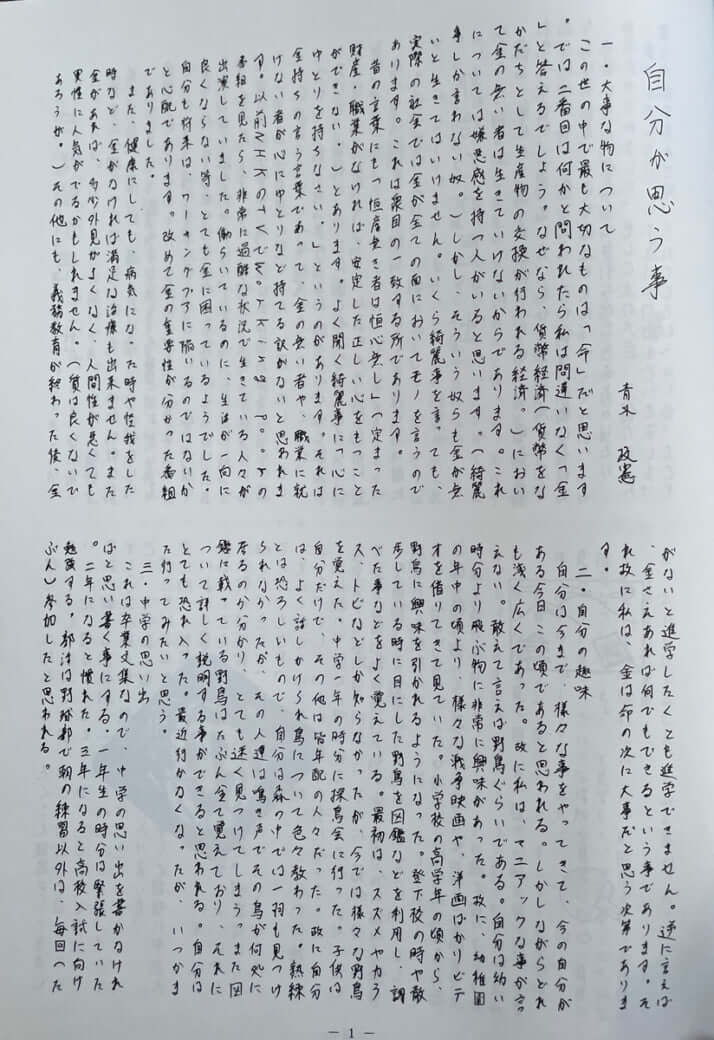 自分が思う事
青木 政憲
一・大事な物について
この世の中で最も大切なものは「命」だと思います
。では二番目は何かと問われたら私は間違いなく「金
」と答えるでしょう。なぜなら、貨幣経済(貨幣をな
かだちとして生産物の交換が行われる経済。)におい
て金の無い者は生きていけないからであります。これ
については嫌悪感を持つ人がいると思います。(綺麗
事しか言わない奴。)しかし、そういう奴らも金が無
いと生きてはいけません。いくら綺麗事を言っても、
実際の社会では金が全ての面においてモノを言うので
あります。これは衆目の一致する所であります。
昔の言葉にも「恒産無き者は恒心無し」(定まった
財産・職業がなければ、安定した正しい心をもつこと
ができない。)とあります。よく聞く綺麗事に「心に
ゆとりを持ちなさい。」というのがあります。それは
金持ちの言う言葉であって、金の無い者や、職業に就
けない者が心にゆとりなど持てる訳がないと思われま
す。以前NHKのテレビで
番組を見たら、非常に過酷な状況で生きている人々が
出演していました。働らいているのに、生活が一向に
良くならない等、とても金に困っているようでした。
自分も将来は、ワーキングプアに陥いるのではないか
と心配であります。改めて金の重要性が分かった番組
でありました。
また、健康にしても、病気になった時や怪我をした
時など、金がなければ満足な治療も出来ません。また
金があれば、多少外見がよくなく、人間性が悪くても
男性に人気がでるかもしれません。(質は良くないで
あろうが。)その他にも、義務教育が終わった後、金
がないと進学したくとも進学できません。逆に言えば
、金さえあれば何でもできるという事であります。そ
れ故に私は、金は命の次に大事だと思う次第でありま
す。
二・自分の趣味
自分は今まで、様々な事をやってきて、今の自分が
ある今日この頃であると思われる。しかしながらどれ
も浅く広くであった。故に私は、マニアックな事が言
えない。敢えて言えば野鳥ぐらいである。自分は幼い
時分より飛ぶ物に非常に興味があった。故に、幼稚園
の年中の頃より、様々な戦争映画や、洋画ばかりビデ
オを借りてきて見ていた。小学校の高学年の頃から、
野鳥に興味を引かれるようになった。登下校の時や散
歩している時に目にした野鳥を図鑑などを利用し、調
べた事などをよく覚えている。最初は、スズメやカラ
ス、トビなどしか知らなかったが、今では様々な野鳥
を覚えた。中学一年の時分に探鳥会に行った。子供は
自分だけで、その他は皆年配の人々だった。故に自分
は、よく話しかけられ鳥について色々教わった。熟練
とは恐ろしいもので、自分は森の中では一羽も見つけ
られなかったが、その人達は鳴き声でその鳥が何処に
居るのか分かり、とても速く見つけてしまう。また図
鑑に載っている野鳥はたぶん全て覚えており、それに
ついて詳しく説明する事ができると思われる。自分は
とても恐れ入った。最近行かなくなったが、いつかま
た行ってみたいと思う。
三・中学の思い出
これは卒業文集なので、中学の思い出を書かなけれ
ばと思い書く事にする。一年生の時分は緊張していた
。二年になると慣れた。三年になると高校入試に向け
勉強する。部活は野球部で朝の練習以外は、毎回(た
ぶん)参加したと思われる。
— 1 —